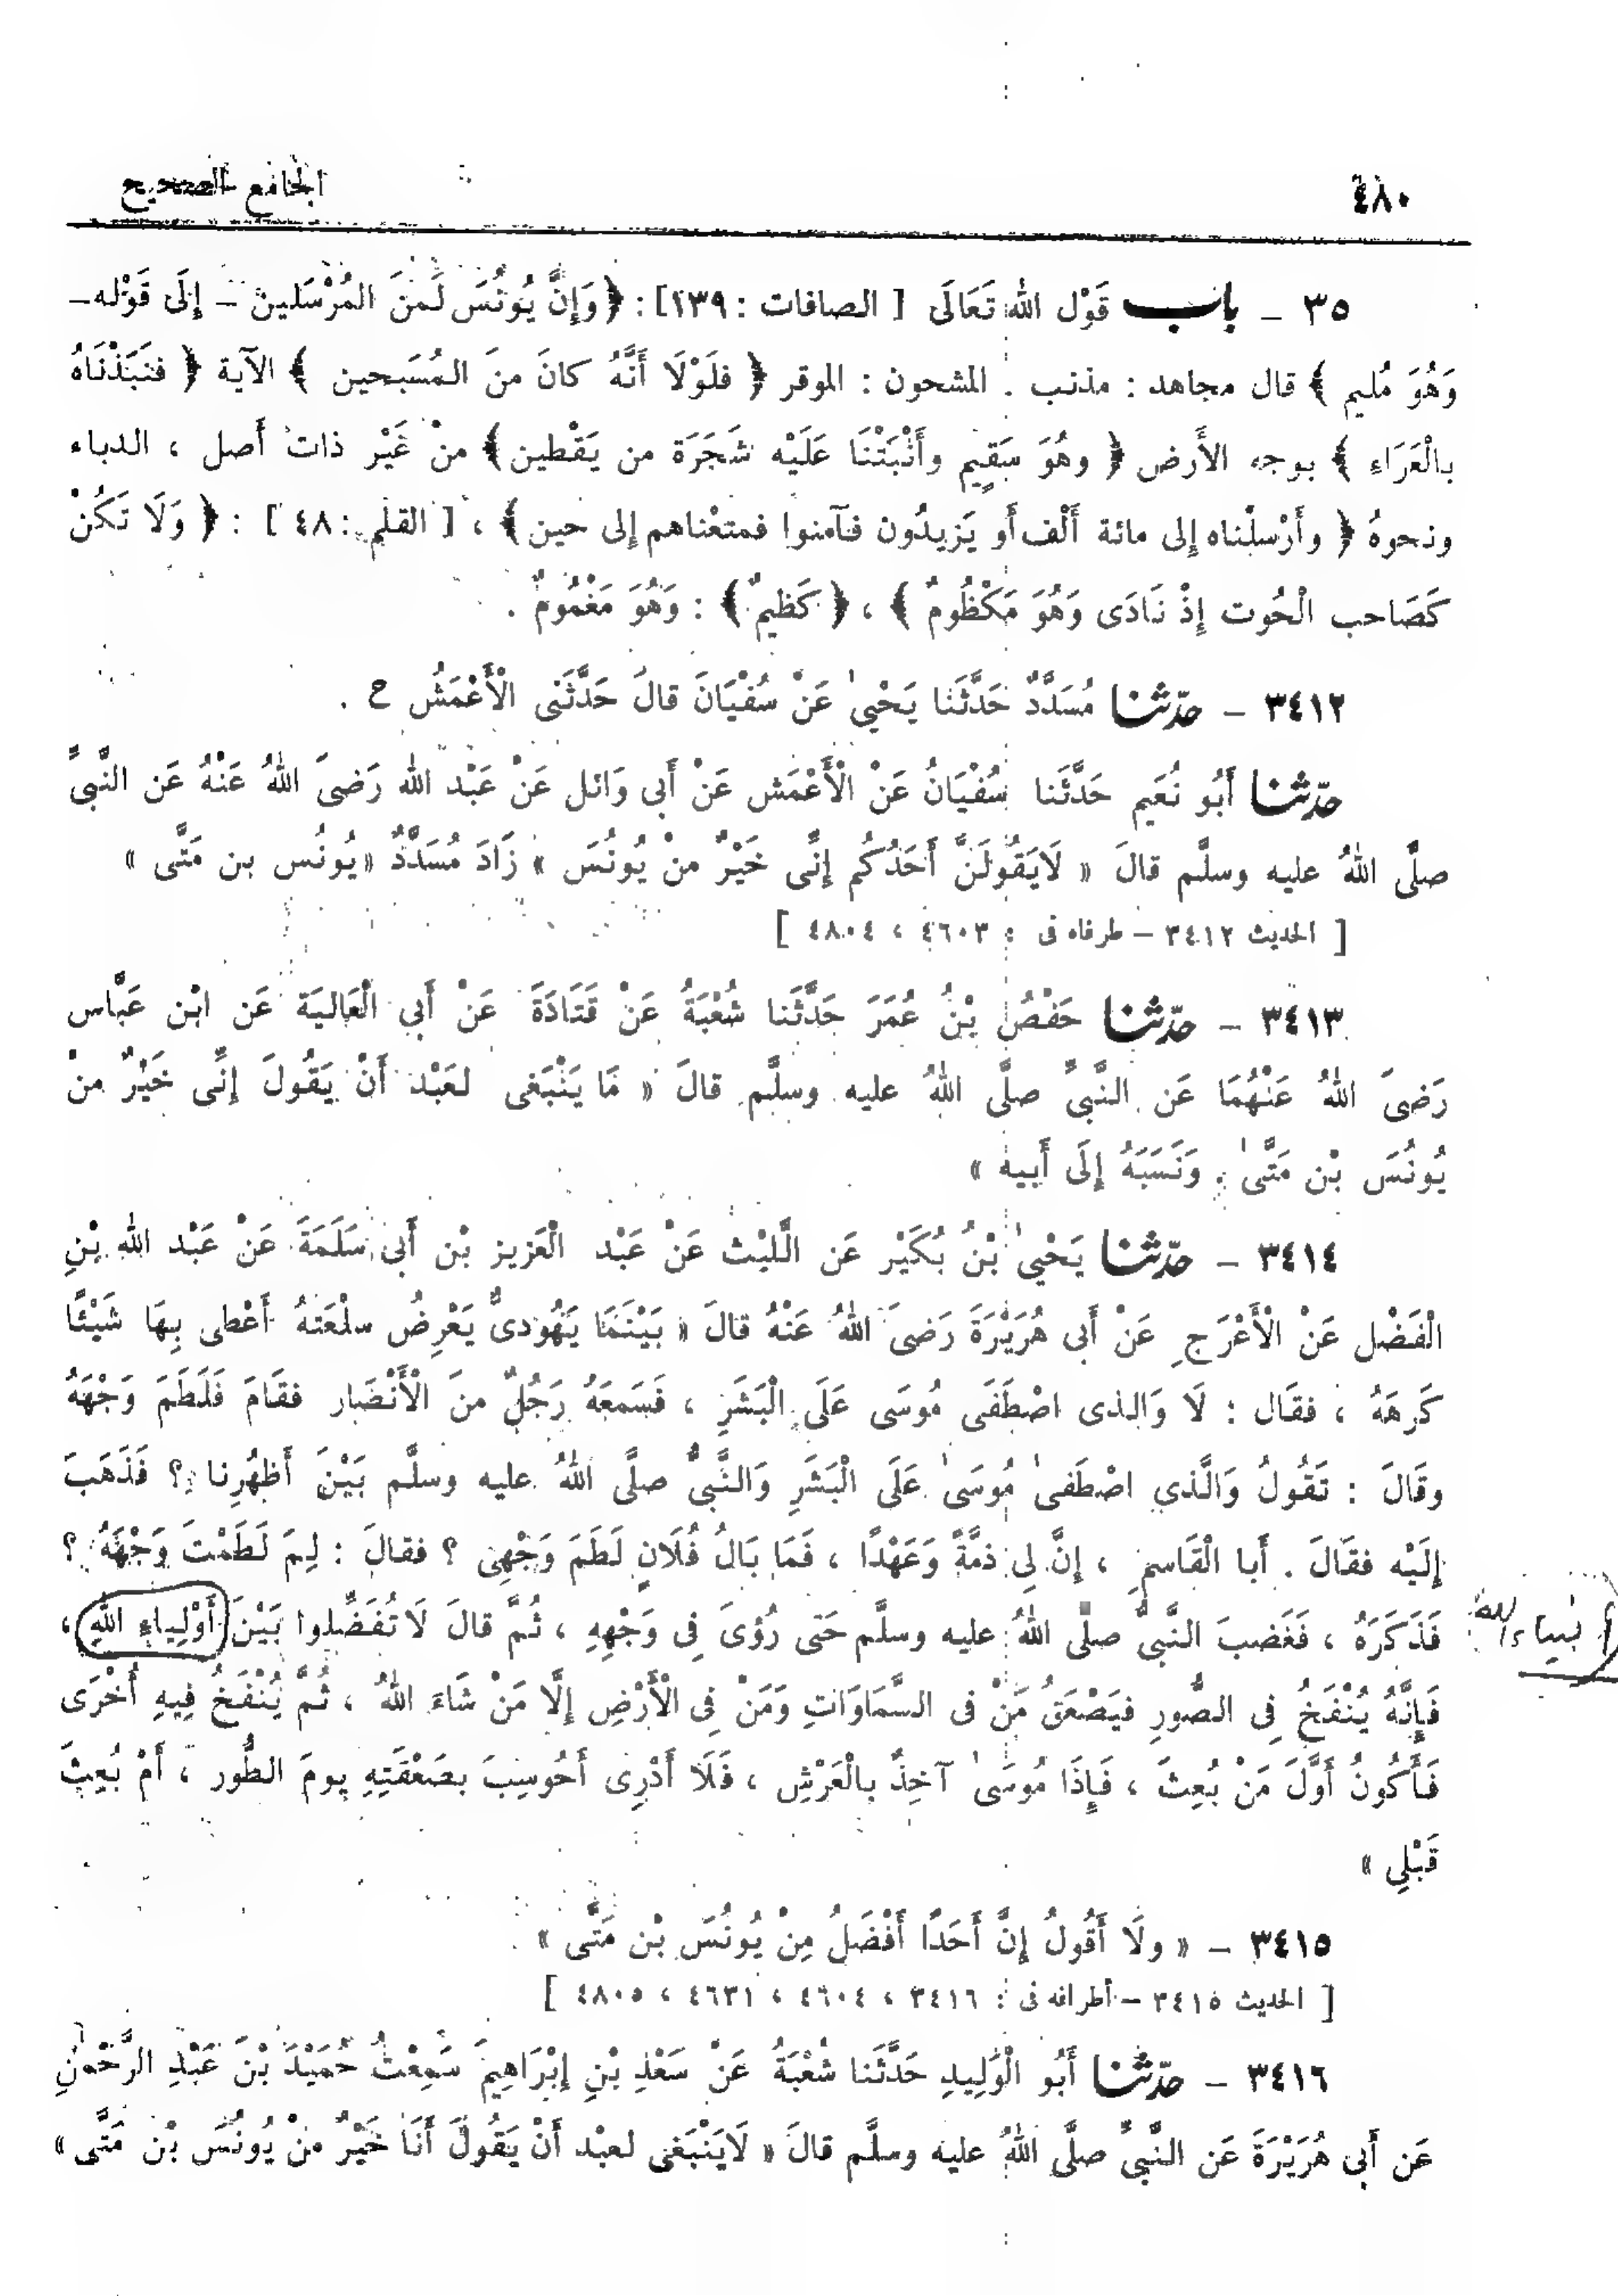 ٤٨٠
الجامع الصحيح
٣٥ – باب قَوْل الله تَعَالَى [ الصافات : ١٣٩] : ﴿ وَإِنَّ يُونُسَ لَمنَ المُرْسَلينَ – إلَى قَوْله–
وَهُوَ مُليم ﴾ قال مجاهد : مذنب . المشحون : الموقر ﴿ فلَوْلَا أَنَّهُ كانَ منَ المُسَبحين ﴾ الآية ﴿ فنَبَذْنَاهُ
بالْعَرَاءِ ﴾ بوجه الأَرض ﴿ وهُوَ سَقِيمٍ وأَنْبَتْنَا عَلَيْه شَجَرَة من يَقْطين﴾ منْ غَيْر ذات أَصل ، الدباء
ونحوهُ ﴿ وأَرْسلْناه إلى مائة أَلْف أَو يَزيدُون فآمنوا فمتعْناهم إلى حين﴾ ، [ القلم : ٤٨ ] : ﴿ وَلَا تَكُنْ
كَصَاحب الْحُوت إذْ نَادَى وَهُوَ مَكْظُومٌ ﴾ ، ﴿ كَظيمٌ ﴾ : وَهُوَ مَغْمُومٌ .
٣٤١٢ – حدّثنا مُسَدَّدٌ حَدَّثَنا يَحْيىٰ عَنْ سُفْيَانَ قالَ حَدَّثَنى الْأَعْمَشُ ح .
حدّثنا أَبُو نُعَيم حَدَّثَنا سُفْيَانُ عَنْ الْأَعْمَش عَنْ أَبى وَائل عَنْ عَبْد الله رَضىَ اللهُ عَنْهُ عَن النَّبىِّ
صلَّى اللهُ عليه وسلَّم قالَ « لَايَقُولَنَّ أَحَدُكُم إنِّى خَيْرٌ منْ يُونُسَ » زَادَ مُسَدَّدٌ «يُونُس بن مَتَّى »
[ الحديث ٣٤١٢ – طرفاه فى : ٤٦٠٣ ، ٤٨٠٤ ]
٣٤١٣ – حدّثنا حَفْصُ بْنُ عُمَرَ حَدَّثَنا شُعْبَةُ عَنْ قَتَادَةَ عَنْ أَبي الْعَاليَة عَن ابْن عَبَّاس
رَضىَ اللهُ عَنْهُمَا عَن النَّبىِّ صلَّى اللهُ عليه وسلَّم قالَ « مَا يَنْبَغى لعَبْد أَنْ يَقُولَ إنِّى خَيْرٌ منْ
يُونُسَ بْن مَتَّىٰ . وَنَسَبَهُ إلَى أَبيه »
٣٤١٤ – حدّثنا يَحْيىٰ بْنُ بُكَيْر عَن الَّليْث عَنْ عَبْد الْعَزيز بْن أَبى سَلَمَةَ عَنْ عَبْد الله بْنِ
الْفَضْل عَنْ الْأَعْرَجِ عَنْ أَبى هُرَيْرَةَ رَضىَ اللهُ عَنْهُ قالَ « بَيْنَمَا يَهُودىٌّ يَعْرِضُ سلْعَتهُ أُعْطى بِهَا شَيْئًا
كَرِهَهُ ، فقَال : لَا وَالذى اصْطَفَى مُوسَى عَلَى الْبَشَرِ ، فَسَمعَهُ رَجُلٌ منَ الْأَنْصَار فقَامَ فَلَطَمَ وَجْهَهُ
وقَالَ : تَقُولُ وَالَّذي اصْطَفىٰ مُوسَىٰ عَلَى الْبَشَرِ وَالنَّبىُّ صلَّى اللهُ عليه وسلَّم بَيْنَ أَظهُرِنا ؟ فَذَهَبَ
إلَيْه فقَالَ . أَبا الْقَاسمِ ، إنَّ لِى ذمَّةً وَعَهْدًا ، فَمَا بَالُ فُلَانٍ لَطَمَ وَجْهِى ؟ فقالَ : لِمَ لَطَمْتَ وَجْهَهُ ؟
فَذَكَرَهُ ، فَغَضبَ النَّبىُّ صلَّى اللهُ عليه وسلَّم حَتى رُؤىَ فى وَجْهِهِ ، ثُمَّ قالَ لَا تُفَضِّلوا بَيْنَ أَوْلِيَاءِ اللهِ ،
أنبياء الله
فَإِنَّهُ يُنْفَخُ فِى الصُّورِ فيَصْعَقُ مَنْ فى السَّمَاوَاتِ وَمَنْ فِى الْأَرْضِ إلَّا مَنْ شَاءَ اللهُ ، ثُمَّ يُنْفَخُ فِيهِ أُخْرَى
فَأَكُونُ أَوَّلَ مَنْ بُعِثَ ، فَإِذَا مُوسَىٰ آخِذٌ بالْعَرْشِ ، فَلَا أَدْرِى أَحُوسِبَ بصَعْقَتِهِ يومَ الطُّور ، أَمْ بُعِثَ
قَبْلِى »
٣٤١٥ – « ولَا أَقُولُ إنَّ أَحَدًا أَفْضَلُ مِنْ يُونُسَ بْن مَتَّى »
[ الحديث ٣٤١٥ – أطرافه فى : ٣٤١٦ ، ٤٦٠٤ ، ٤٦٣١ ، ٤٨٠٥ ]
٣٤١٦ – حدّثنا أَبُو الْوَلِيدِ حَدَّثَنا شُعْبَةُ عَنْ سَعْدِ بْنِ إبْرَاهِيمَ سَمِعْتُ حُمَيْدَ بْنَ عَبْدِ الرَّحْمنِ
عَن أَبى هُرَيْرَةَ عَن النَّبىِّ صلَّى اللهُ عليه وسلَّم قالَ « لَايَنْبَغى لعبْد أَنْ يَقُولَ أَنَا خَيْرٌ منْ يُونُسَ بْن مَتَّى »